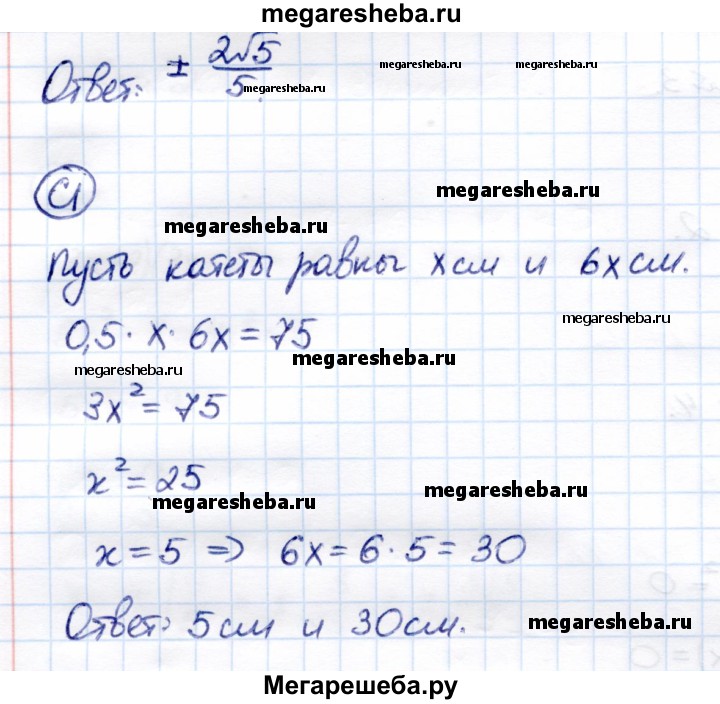 megaresheba.ru
Ответ: ± 2√5/5.
megaresheba.ru megaresheba.ru
megaresheba.ru
C1
megaresheba.ru
megaresheba.ru
Пусть катеты равны x см и 6x см.
megaresheba.ru
0,5 · x · 6x = 75
megaresheba.ru
megaresheba.ru
3x² = 75
x² = 25
megaresheba.ru
megaresheba.ru
x = 5 ⇒ 6x = 6 · 5 = 30
Ответ: 5 см и 30 см.
megaresheba.ru
Мегарешеба.ру